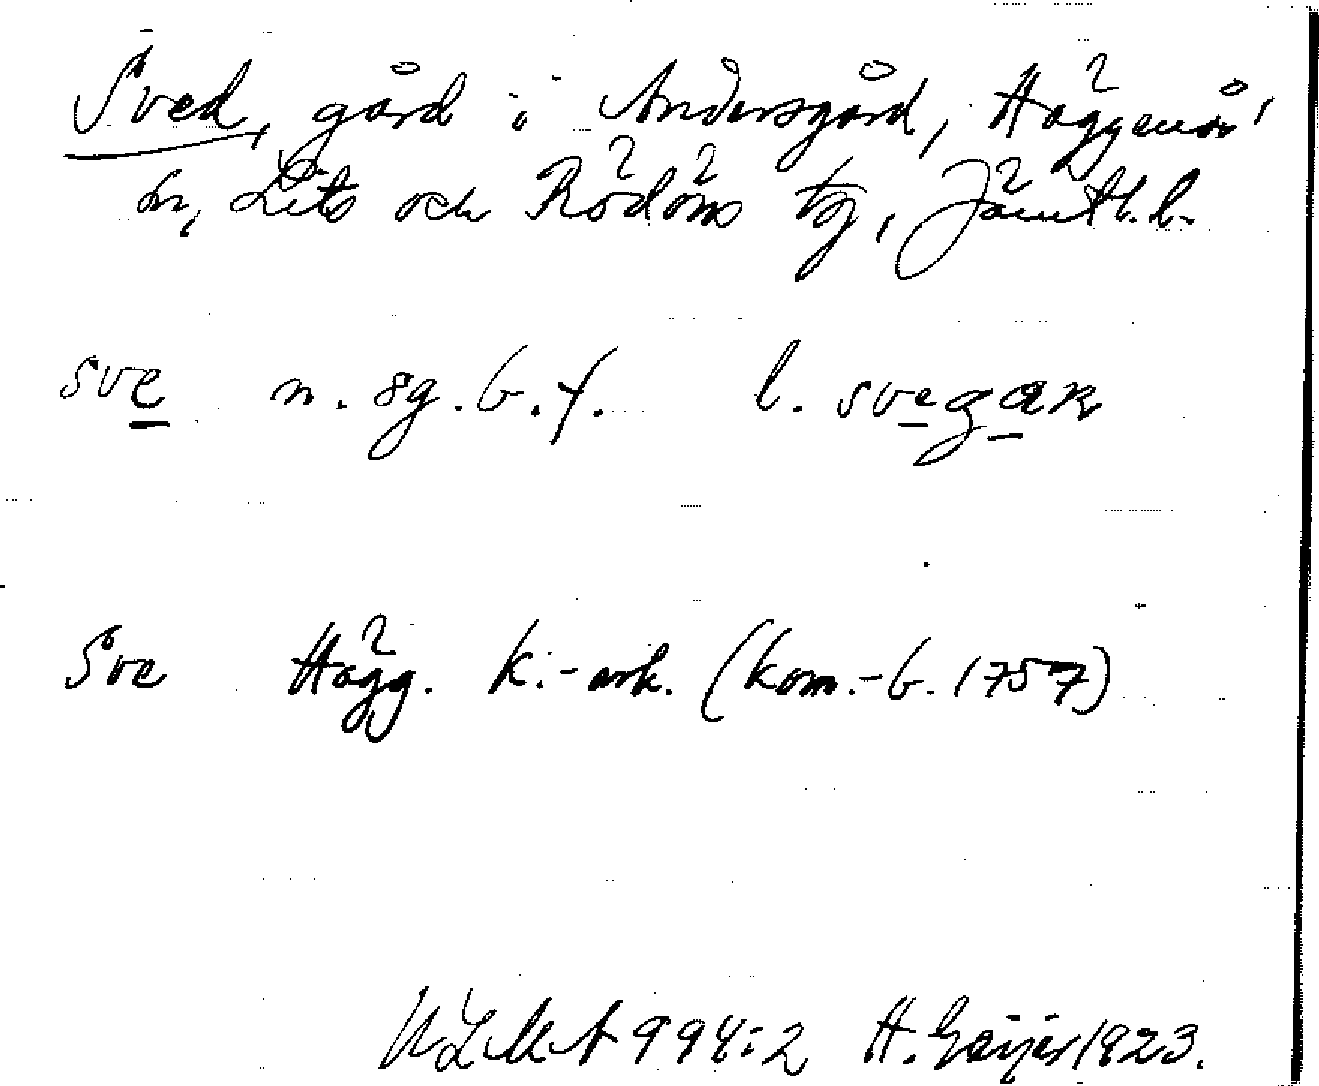 Sved, gård i Andersgård, Häggenås'
sn, Lits och Rödöns tg, Jämtl. l.
sve n. sg. b. f. l. svegaɴ
Sve Hägg. k.-ark. (kom.-b. 1757)
ULMA 994:2 H. Geijer 1923.